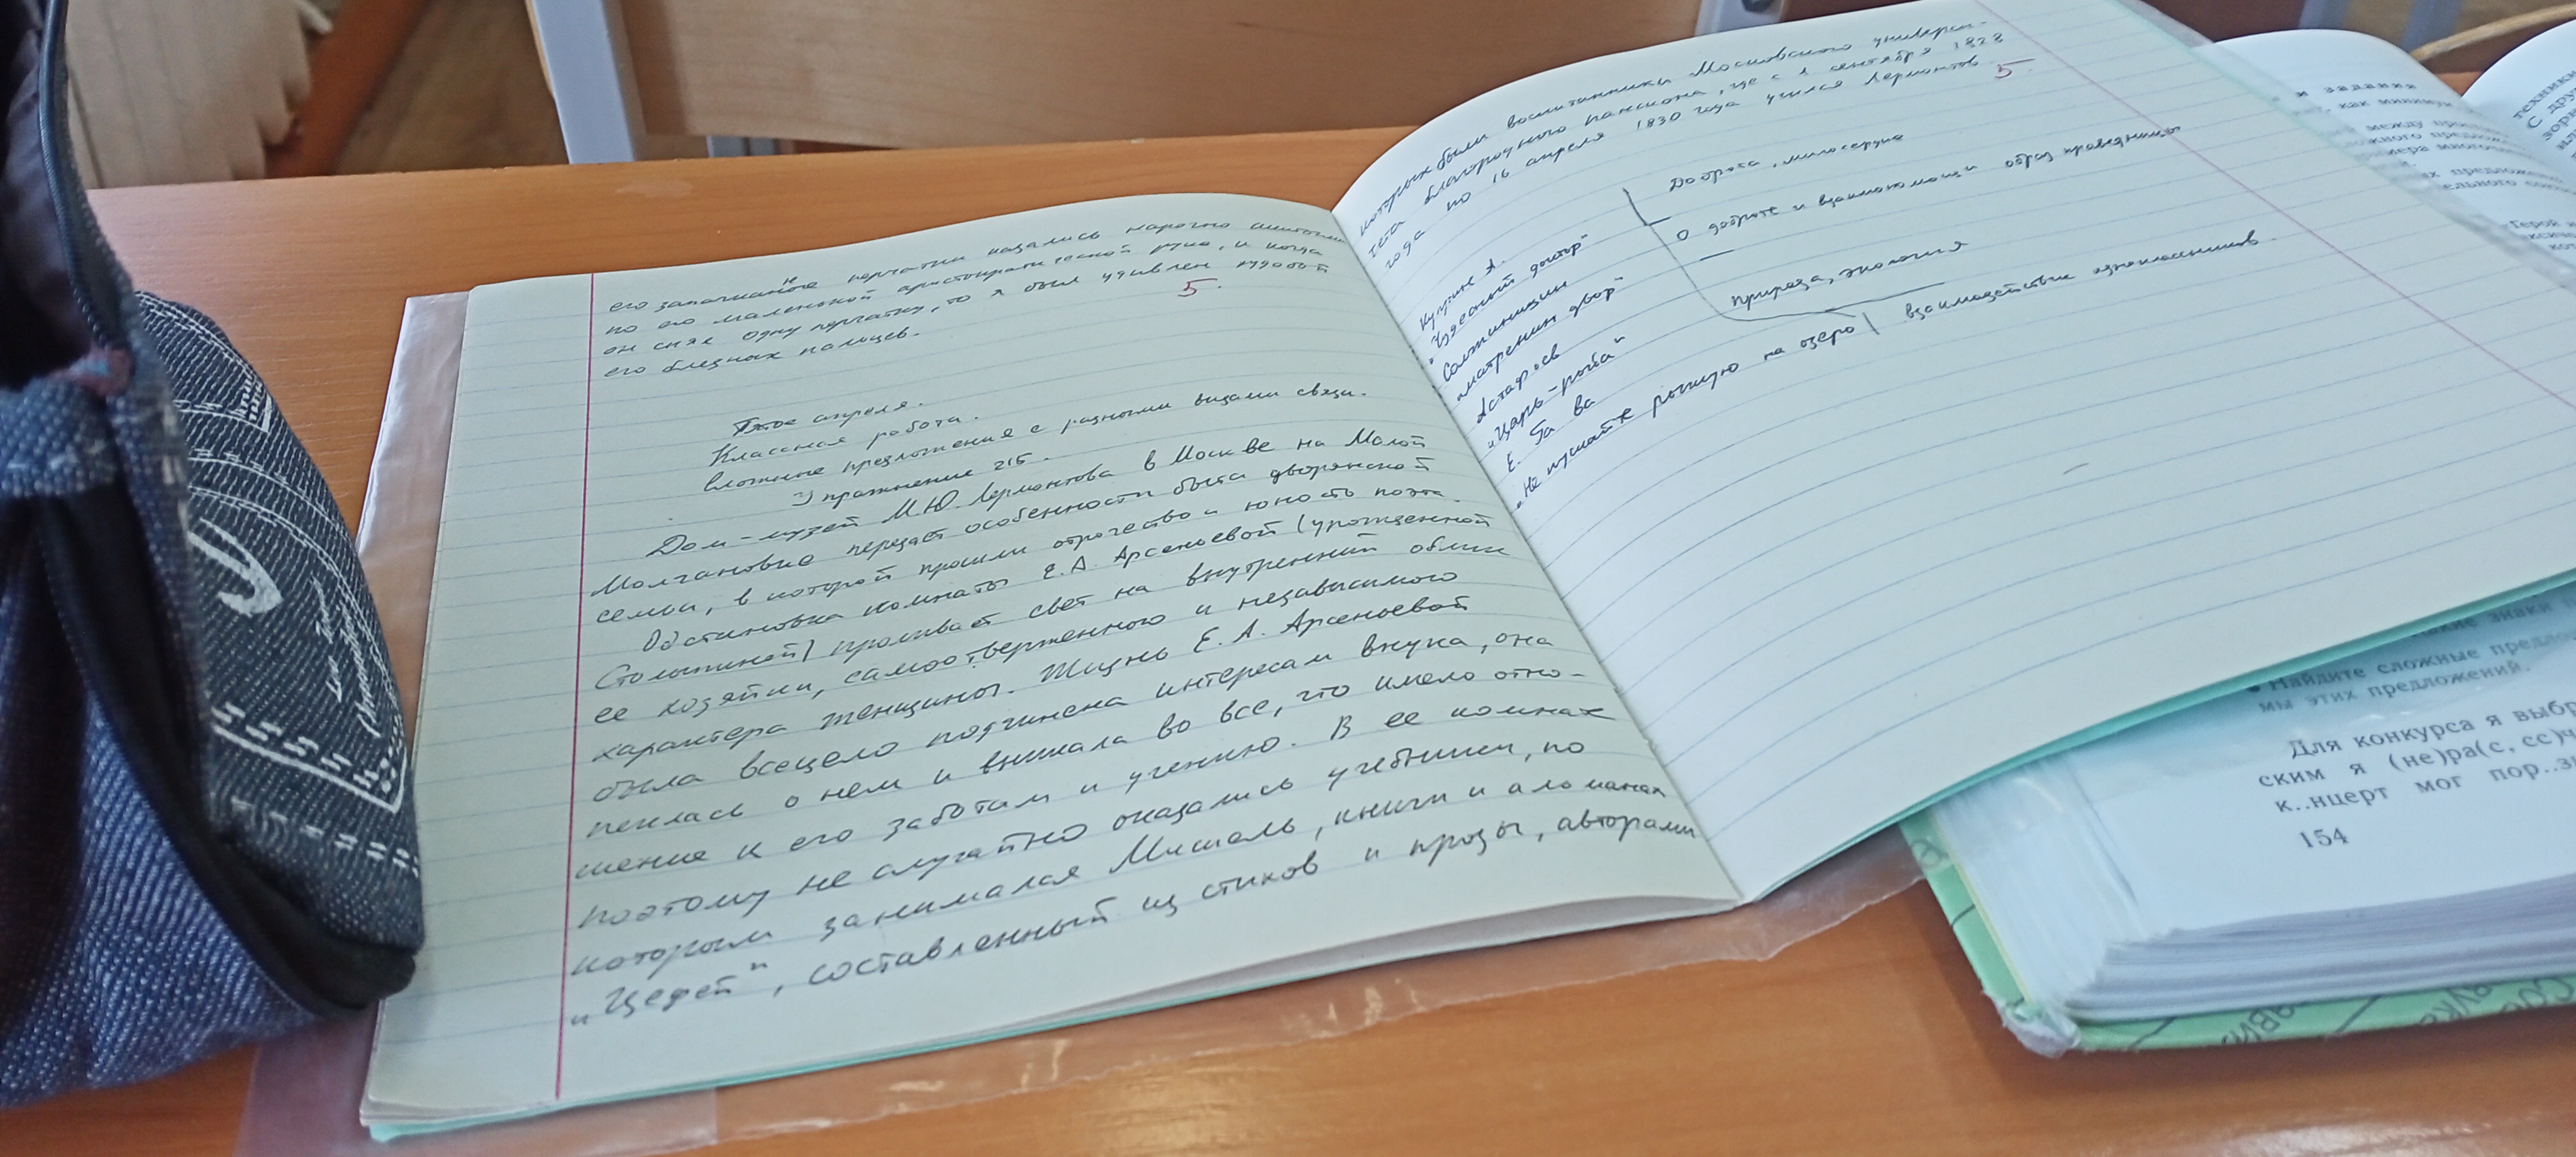 его запачканные перчатки казались нарочно сшитыми
по его маленькой аристократической руке, и когда
он снял одну перчатку, то я был удивлен худобой
его бледных пальцев.
5.
Пятое апреля.
Классная работа.
Сложные предложения с разными видами связи.
Упражнение 215.
Дом-музей М.Ю. Лермонтова в Москве на Малой
Молчановке передает особенности быта дворянской
семьи, в которой прошли отрочество и юность поэта.
Обстановка комнаты Е.А. Арсеньевой (урожденной
Столыпиной) проливает свет на внутренний облик
ее хозяйки, самоотверженного и независимого
характера женщины. Жизнь Е.А. Арсеньевой
была всецело подчинена интересам внука, она
пеклась о нем и вникала во все, что имело отно-
шение к его заботам и учению. В ее комнах
поэтому не случайно оказались учебники, по
которым занимался Мишель, книги и альманах
„Цефей", составленный из стихов и прозы, авторами
которых были воспитанники Московского универси-
тета благородного пансиона, где с 1 сентября 1828
года по 16 апреля 1830 года учился Лермонтов
5.
Куприн А.
„Чудесный доктор"
Доброта, милосердие
Солженицын
„Матренин двор"
О доброте и взаимопомощи образ праведницы
Астафьев
„Царь-рыба"
природа, экология
Е. Га ва
„Не пускайте рыжую на озеро
взаимодействие одноклассников.
и задания
как минимум
между
Найдите сложные
мы этих предложений.
Для конкурса я
ским я (не)ра(с, сс)ч
к..нцерт мог пор..з
154